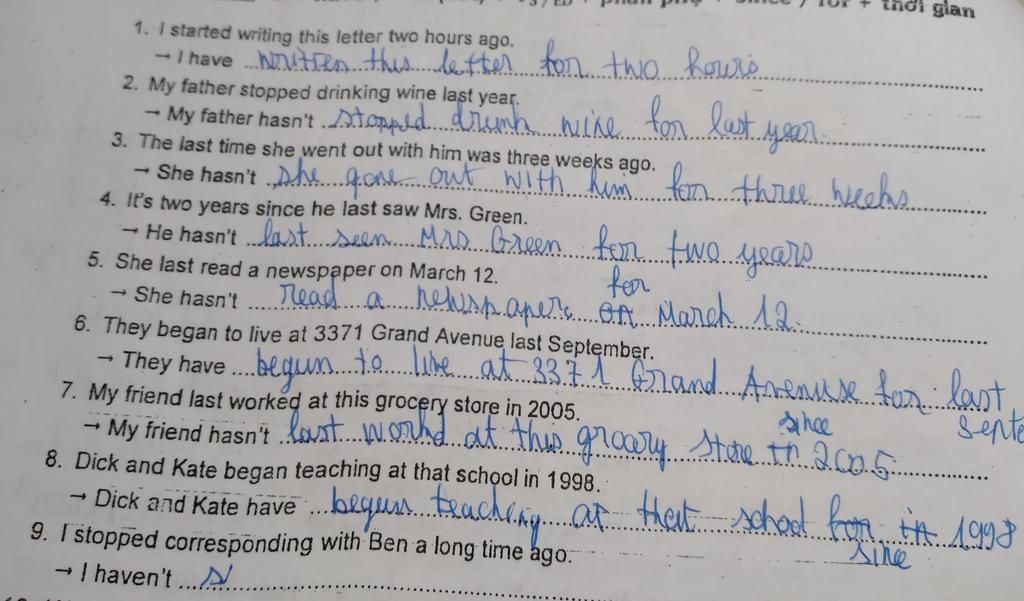 thời gian
1. I started writing this letter two hours ago.
→ I have written this letter for two hours
2. My father stopped drinking wine last year.
→ My father hasn't stopped drunk wine for last year.
3. The last time she went out with him was three weeks ago.
→ She hasn't she gone out with him for three weeks
4. It's two years since he last saw Mrs. Green.
→ He hasn't last seen Mrs Green for two years
5. She last read a newspaper on March 12.
for
→ She hasn't read a newspaper on March 12.
6. They began to live at 3371 Grand Avenue last September.
→ They have begun to live at 3371 Grand Avenuse for last
7. My friend last worked at this grocery store in 2005.
since
→ My friend hasn't last workd at this grocery store in 2005
8. Dick and Kate began teaching at that school in 1998.
→ Dick and Kate have begun teaching at that school for in 1998
sine
9. I stopped corresponding with Ben a long time ago.
→ I haven't s